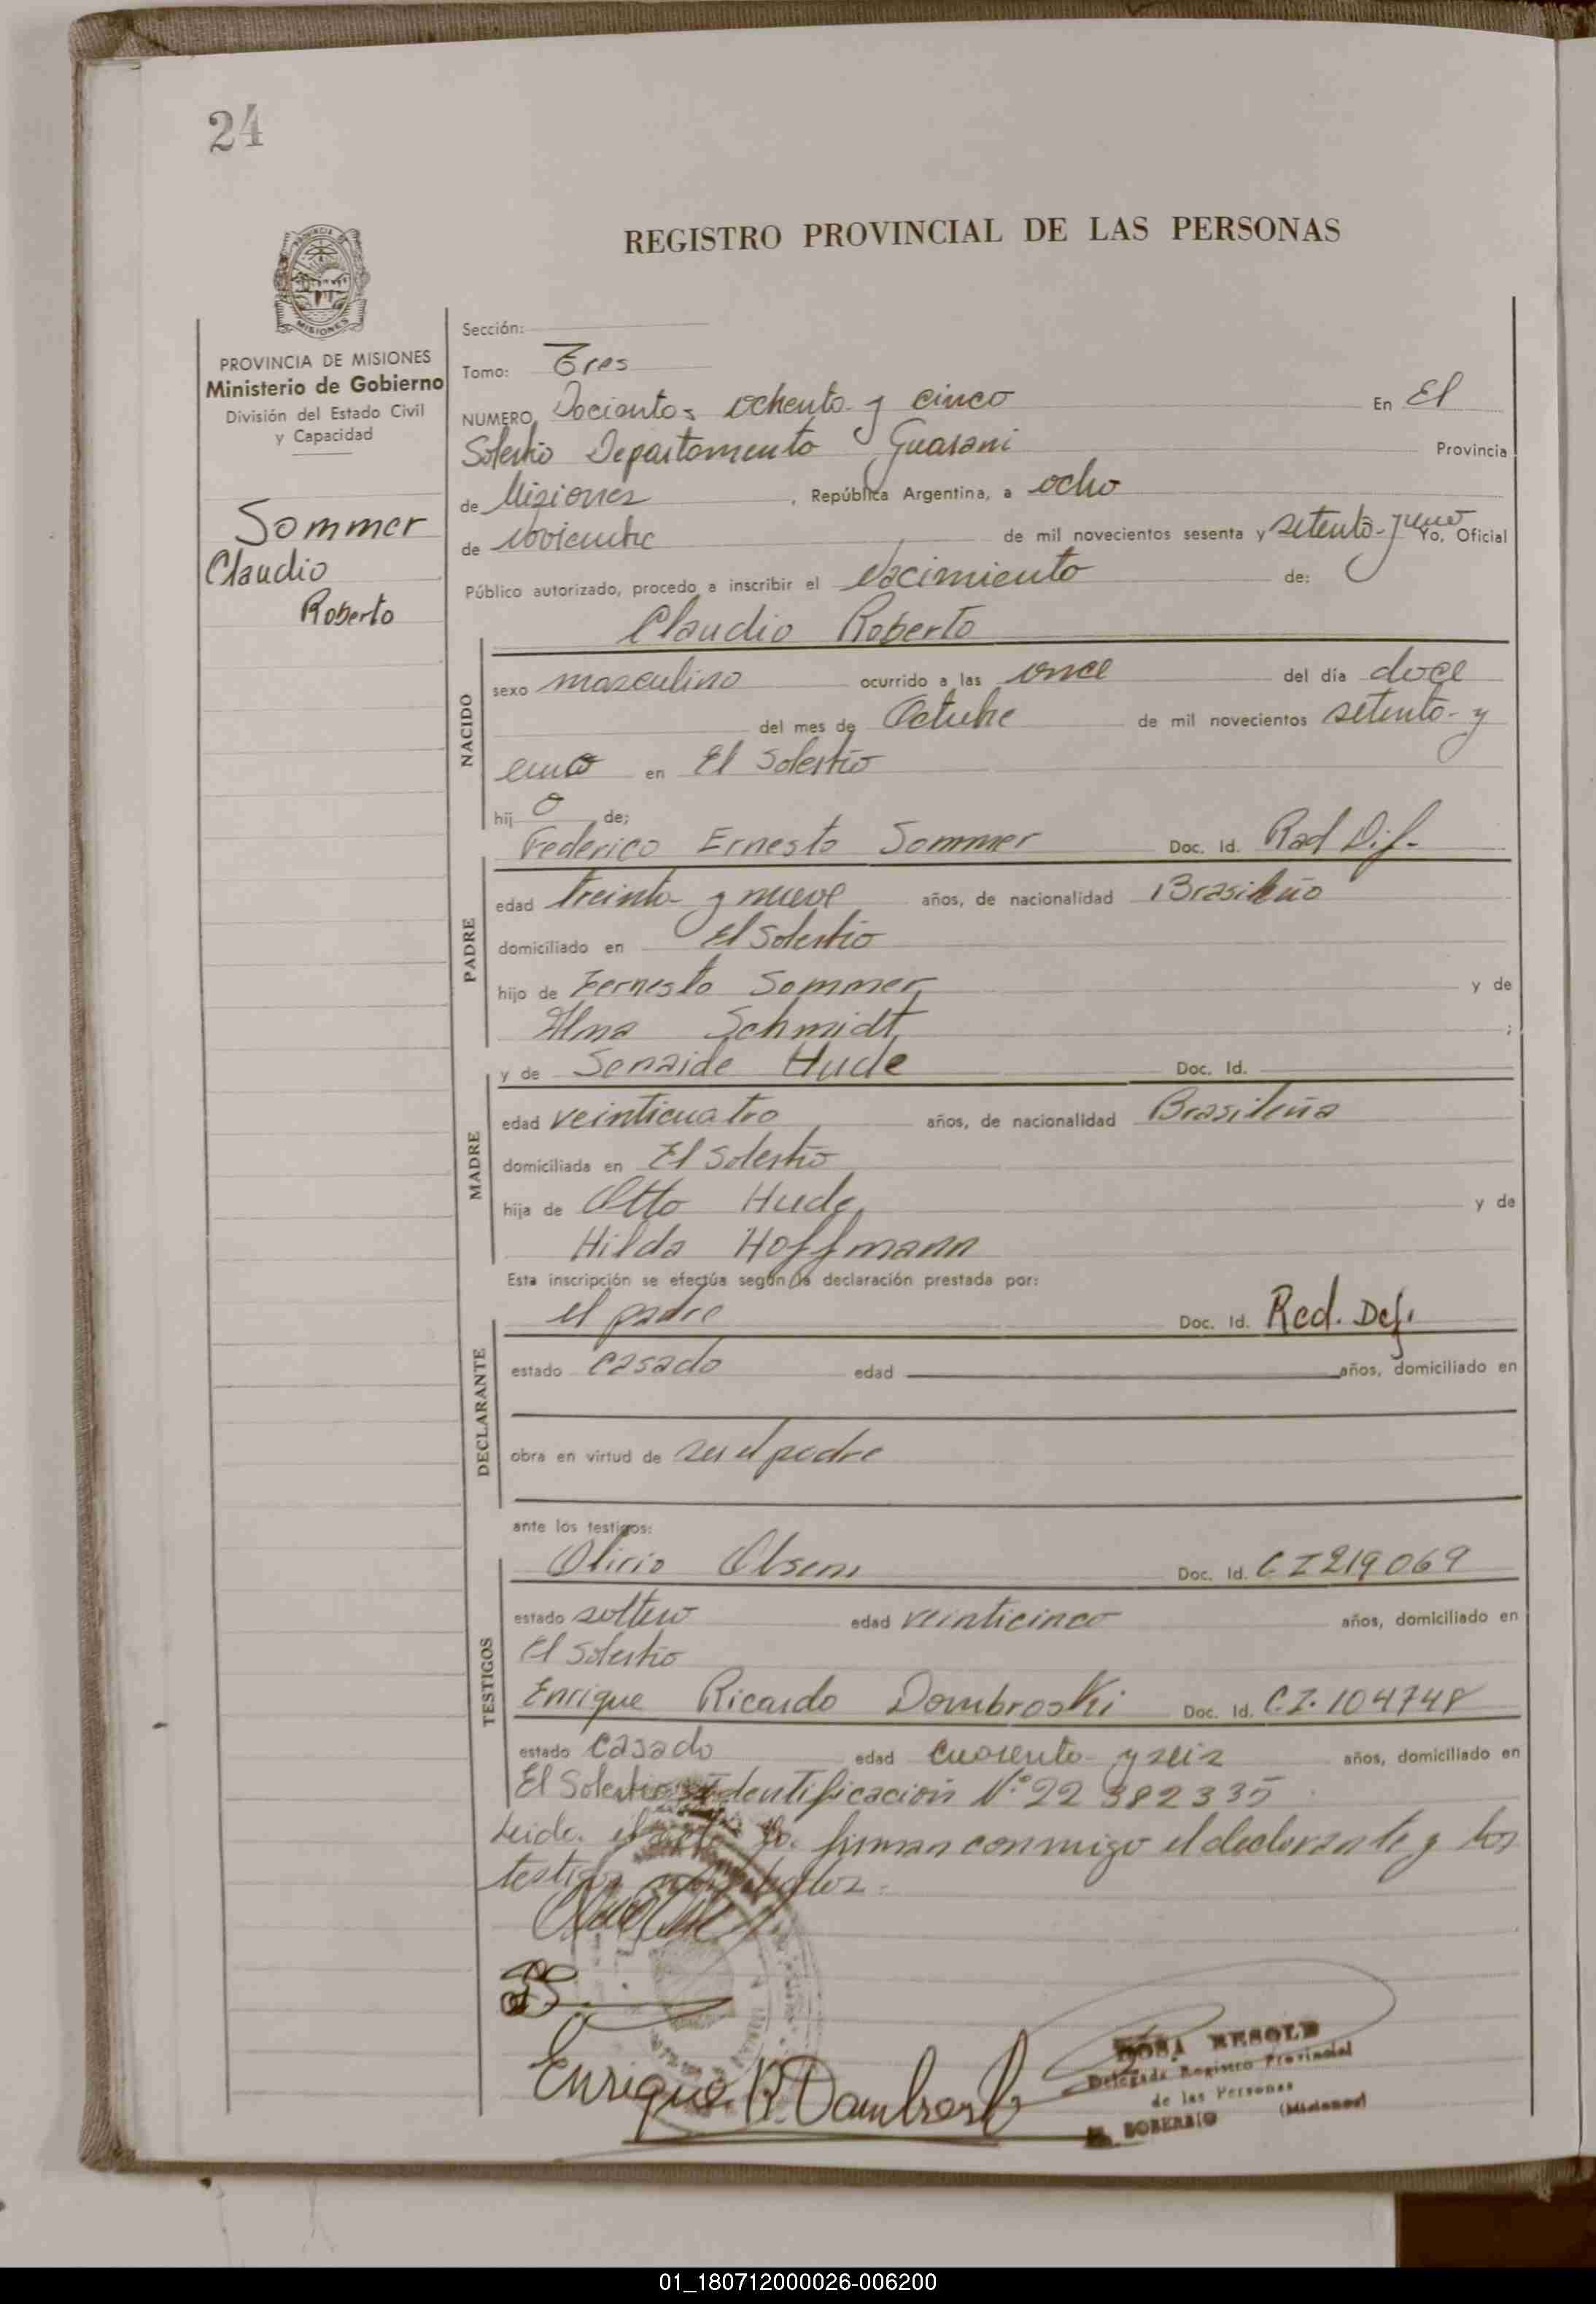 24
REGISTRO PROVINCIAL DE LAS PERSONAS
PROVINCIA DE MISIONES
MISIONES
PROVINCIA DE MISIONES
Ministerio de Gobierno
División del Estado Civil
y Capacidad
Sommer
Claudio
Roberto
Sección:
Tomo: Tres
NUMERO Docientos ochenta y cinco En El
Soberbio Departamento Guarani Provincia
de Misiones, República Argentina, a ocho
de noviembre de mil novecientos sesenta y setenta y uno Yo, Oficial
Público autorizado, procedo a inscribir el Nacimiento de:
Claudio Roberto
NACIDO
sexo masculino ocurrido a las once del día doce
del mes de Octubre de mil novecientos setenta y
uno en El Soberbio
hij o de;
Federico Ernesto Sommer Doc. Id. Rad Dif.
PADRE
edad treinta y nueve años, de nacionalidad Brasileño
domiciliado en El Soberbio
hijo de Eernesto Sommer y de
Alma Schmidt ;
y de Senaide Hude Doc. Id.
MADRE
edad veinticuatro años, de nacionalidad Brasileña
domiciliada en El Soberbio
hija de Otto Hude y de
Hilda Hoffmann
Esta inscripción se efectúa según la declaración prestada por:
el padre Doc. Id. Rad. Def.
DECLARANTE
estado casado edad años, domiciliado en
obra en virtud de ser el padre
ante los testigos:
Olirio Olsen Doc. Id. C I 219069
TESTIGOS
estado soltero edad veinticinco años, domiciliado en
El Soberbio
Enrique Ricardo Dombroski Doc. Id. C.I. 104748
estado casado edad cuarenta y seis años, domiciliado en
El Soberbio Identificación N° 22 382335
Leida el acta firman conmigo el declarante y los
testigos
Enrique R. Dombroski
ROSA RESOLD
Delegada Registro Provincial
de las Personas
EL SOBERBIO (Misiones)
01_180712000026-006200